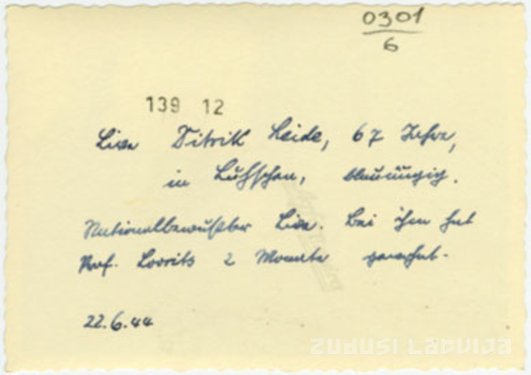 0301
6
139 12
Live Ditrik Leide, 67 Jahre,
in Luhschen, blauäugig.
Nationalbewußter Live. Bei ihm hat
Prof. Loorits 2 Monate gewohnt.
22.6.44
ZUDUSI LATVIJA